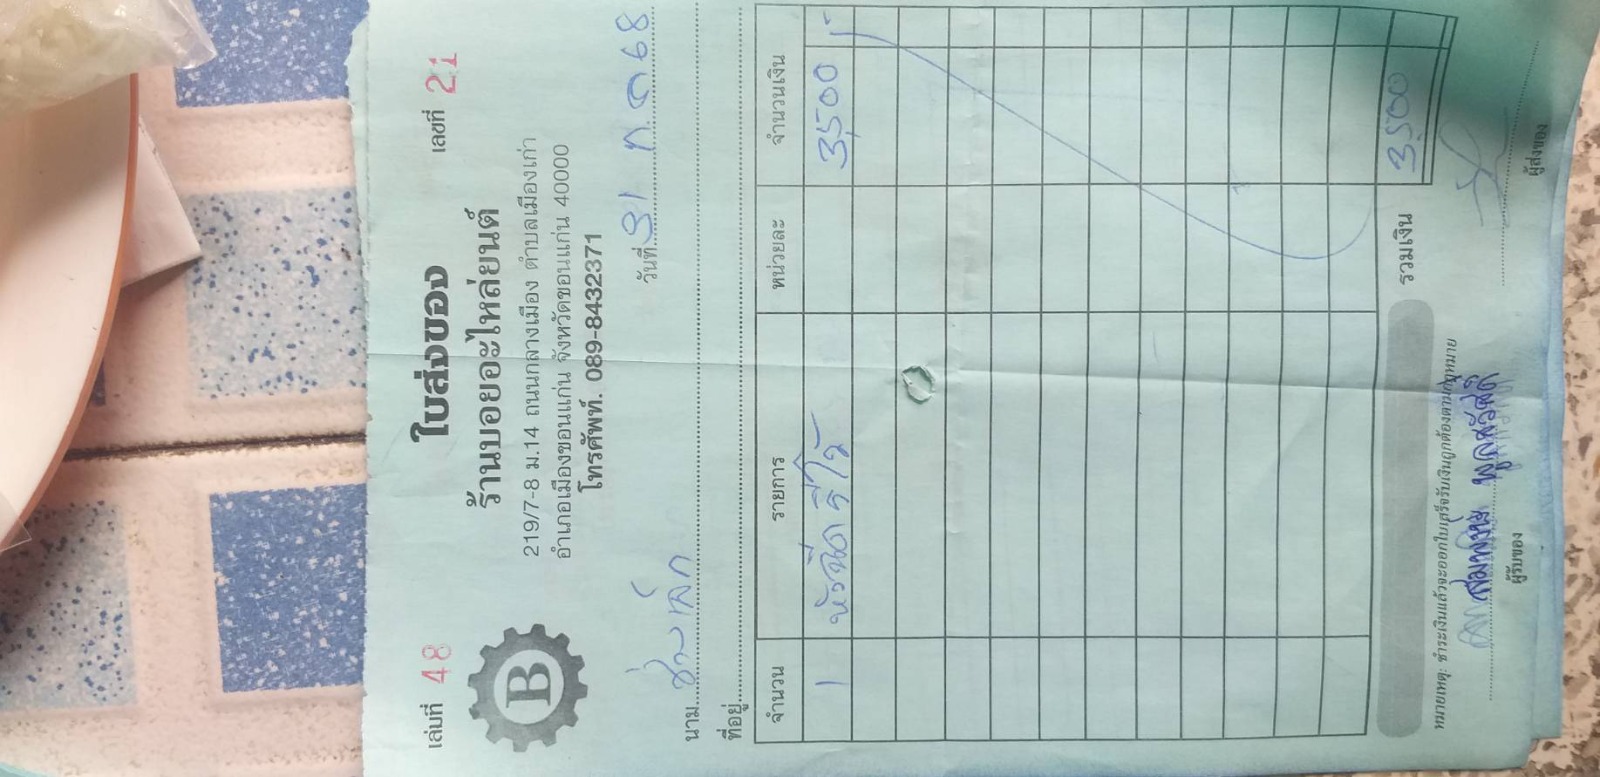 เล่มที่ 48 ใบส่งของ เลขที่ 21
ร้านบอยอะไหล่ยนต์
219/7-8 ม.14 ถนนกลางเมือง ตำบลเมืองเก่า
อำเภอเมืองขอนแก่น จังหวัดขอนแก่น 40000
โทรศัพท์. 089-8432371
B
วันที่ 31 ก.ค 68
นาม ช่างเล็ก
ที่อยู่
จำนวน รายการ หน่วยละ จำนวนเงิน
1 หัวฉีดรีโว้ 3,500 -
รวมเงิน 3,500
หมายเหตุ: ชำระเงินแล้วจะออกใบเสร็จรับเงินถูกต้องตามกฎหมาย
ผู้รับของ ผู้ส่งของ